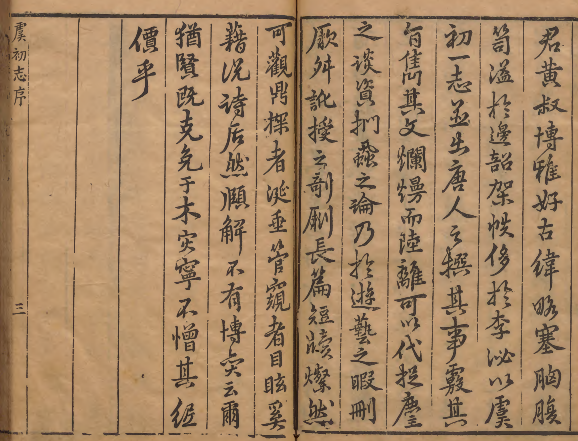 君黃叔博雅好古緯略塞胸腹
笥溢於邊韶架帙侈於李泌以虞
初一志並出唐人之撰其事覈其
旨雋其文爛熳而陸離可以代捉麈
之談資捫蝨之論乃於遊藝之暇刪
厥舛訛授之剞劂長篇短牘燦然
可觀鼎探者涎垂管窺者目眩奚
藉況詩居然頤解不有博奕云爾
猶賢旣克免于木灾寧不憎其紙
價乎
虞初志序
三